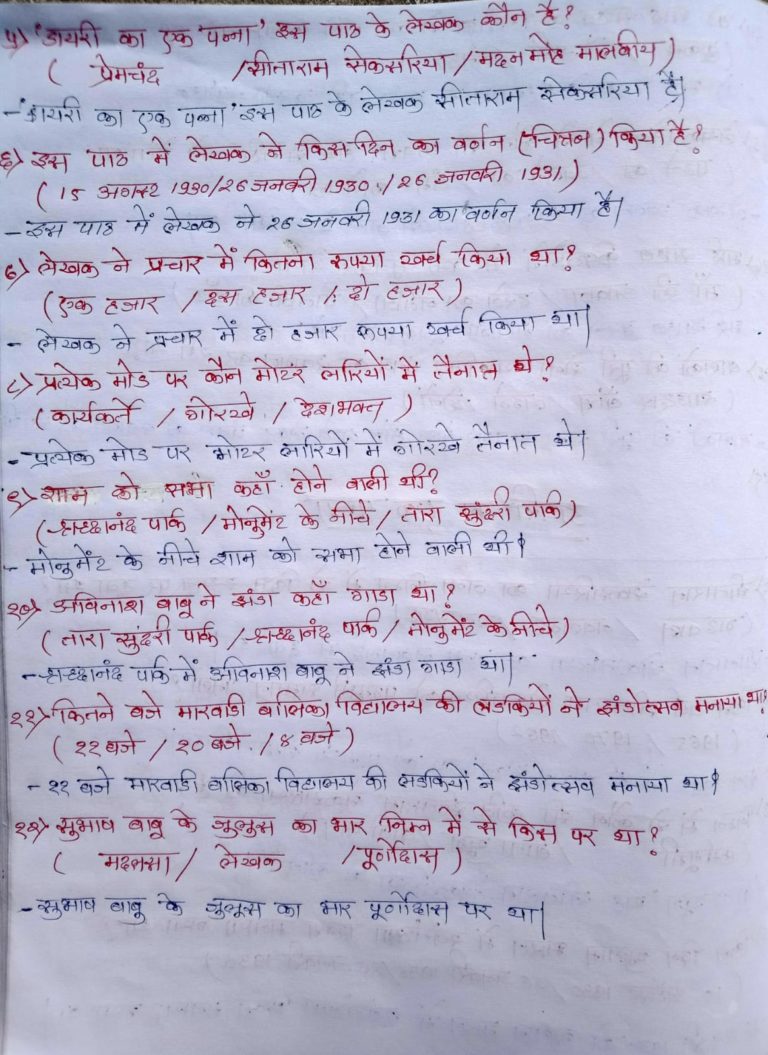 ५) 'डायरी का एक पन्ना' इस पाठ के लेखक कौन है?
( प्रेमचंद / सीताराम सेकसरिया / मदन मोह मालवीय )
- 'डायरी का एक पन्ना' इस पाठ के लेखक सीताराम सेकसरिया है।
६) इस पाठ में लेखक ने किस दिन का वर्णन (चित्रन) किया है?
( 15 अगस्ट 1930 / 26 जनवरी 1930 / 26 जनवरी 1931 )
- इस पाठ में लेखक ने 26 जनवरी 1931 का वर्णन किया है।
७) लेखक ने प्रचार में कितना रूपया खर्च किया था?
( एक हजार / दस हजार / दो हजार )
- लेखक ने प्रचार में दो हजार रूपया खर्च किया था।
८) प्रत्येक मोड पर कौन मोटर लारियों में तैनात थे?
( कार्यकर्ते / गोरखे / देशभक्त )
- प्रत्येक मोड पर मोटर लारियों में गोरखे तैनात थे।
९) शाम को सभा कहाँ होने वाली थी?
( श्रध्दानंद पार्क / मोनुमेंट के नीचे / तारा सुंदरी पार्क )
- मोनुमेंट के नीचे शाम को सभा होने वाली थी।
१०) अविनाश बाबू ने झंडा कहाँ गाडा था?
( तारा सुंदरी पार्क / श्रध्दानंद पार्क / मोनुमेंट के नीचे )
- श्रध्दानंद पार्क में अविनाश बाबू ने झंडा गाडा था।
११) कितने बजे मारवाडी बालिका विद्यालय की लडकियों ने झंडोत्सव मनाया था?
( ११ बजे / १० बजे / ४ बजे )
- ११ बजे मारवाडी बालिका विद्यालय की लडकियों ने झंडोत्सव मनाया था।
१२) सुभाष बाबू के जुलूस का भार निम्न में से किस पर था?
( मदलसा / लेखक / पूर्णोदास )
- सुभाष बाबु के जुलूस का भार पूर्णोदास पर था।